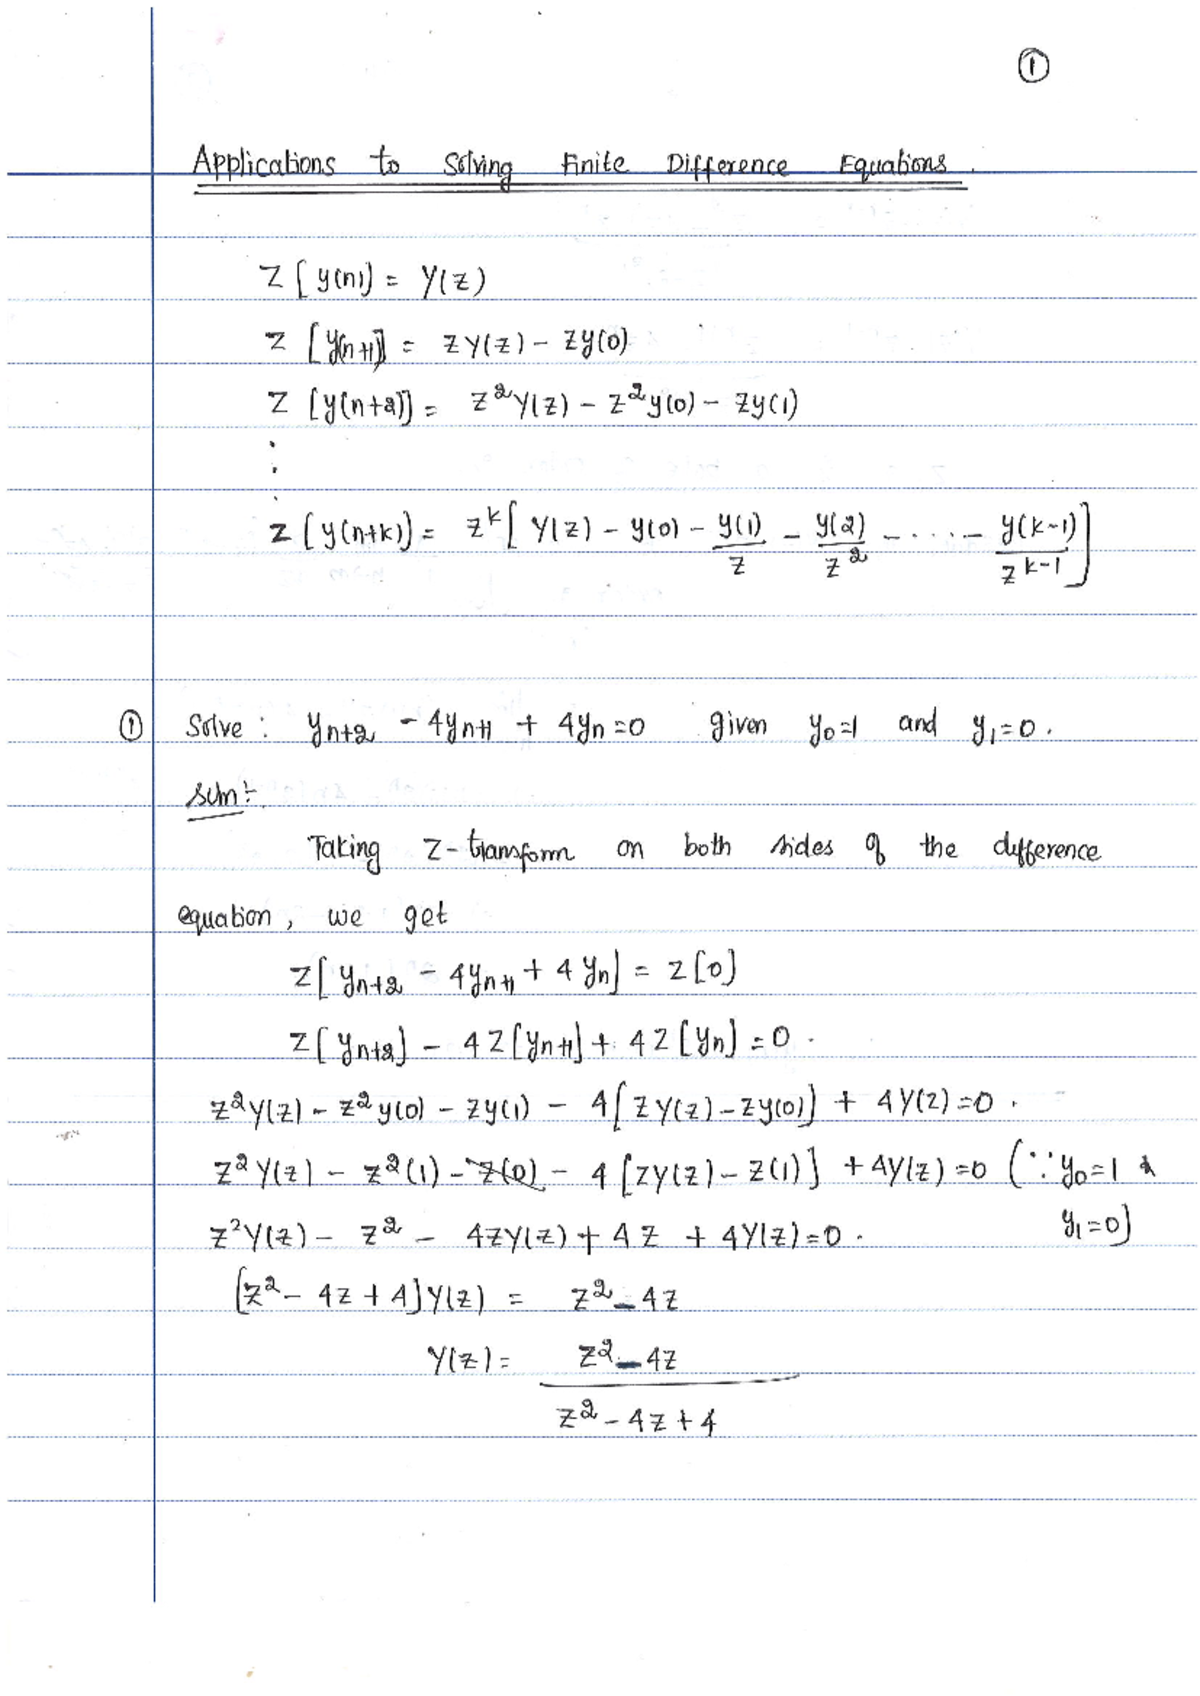 ①
Applications to Solving Finite Difference Equations.
Z[y(n)] = Y(z)
Z[y(n+1)] = zY(z) - zy(0)
Z[y(n+2)] = z²Y(z) - z²y(0) - zy(1)
⋮
Z[y(n+k)] = z^k [Y(z) - y(0) - y(1)/z - y(2)/z² - .... - y(k-1)/z^(k-1)]
① Solve : yₙ₊₂ - 4yₙ₊₁ + 4yₙ = 0 given y₀=1 and y₁=0.
Soln:-
Taking Z-transform on both sides of the difference
equation, we get
Z[yₙ₊₂ - 4yₙ₊₁ + 4yₙ] = Z[0]
Z[yₙ₊₂] - 4Z[yₙ₊₁] + 4Z[yₙ] = 0.
z²Y(z) - z²y(0) - zy(1) - 4[zY(z) - zy(0)] + 4Y(z) = 0.
z²Y(z) - z²(1) - z(0) - 4[zY(z) - z(1)] + 4Y(z) = 0 (∵ y₀=1 &
y₁=0)
z²Y(z) - z² - 4zY(z) + 4z + 4Y(z) = 0.
[z² - 4z + 4]Y(z) = z² - 4z
Y(z) = z² - 4z
z² - 4z + 4